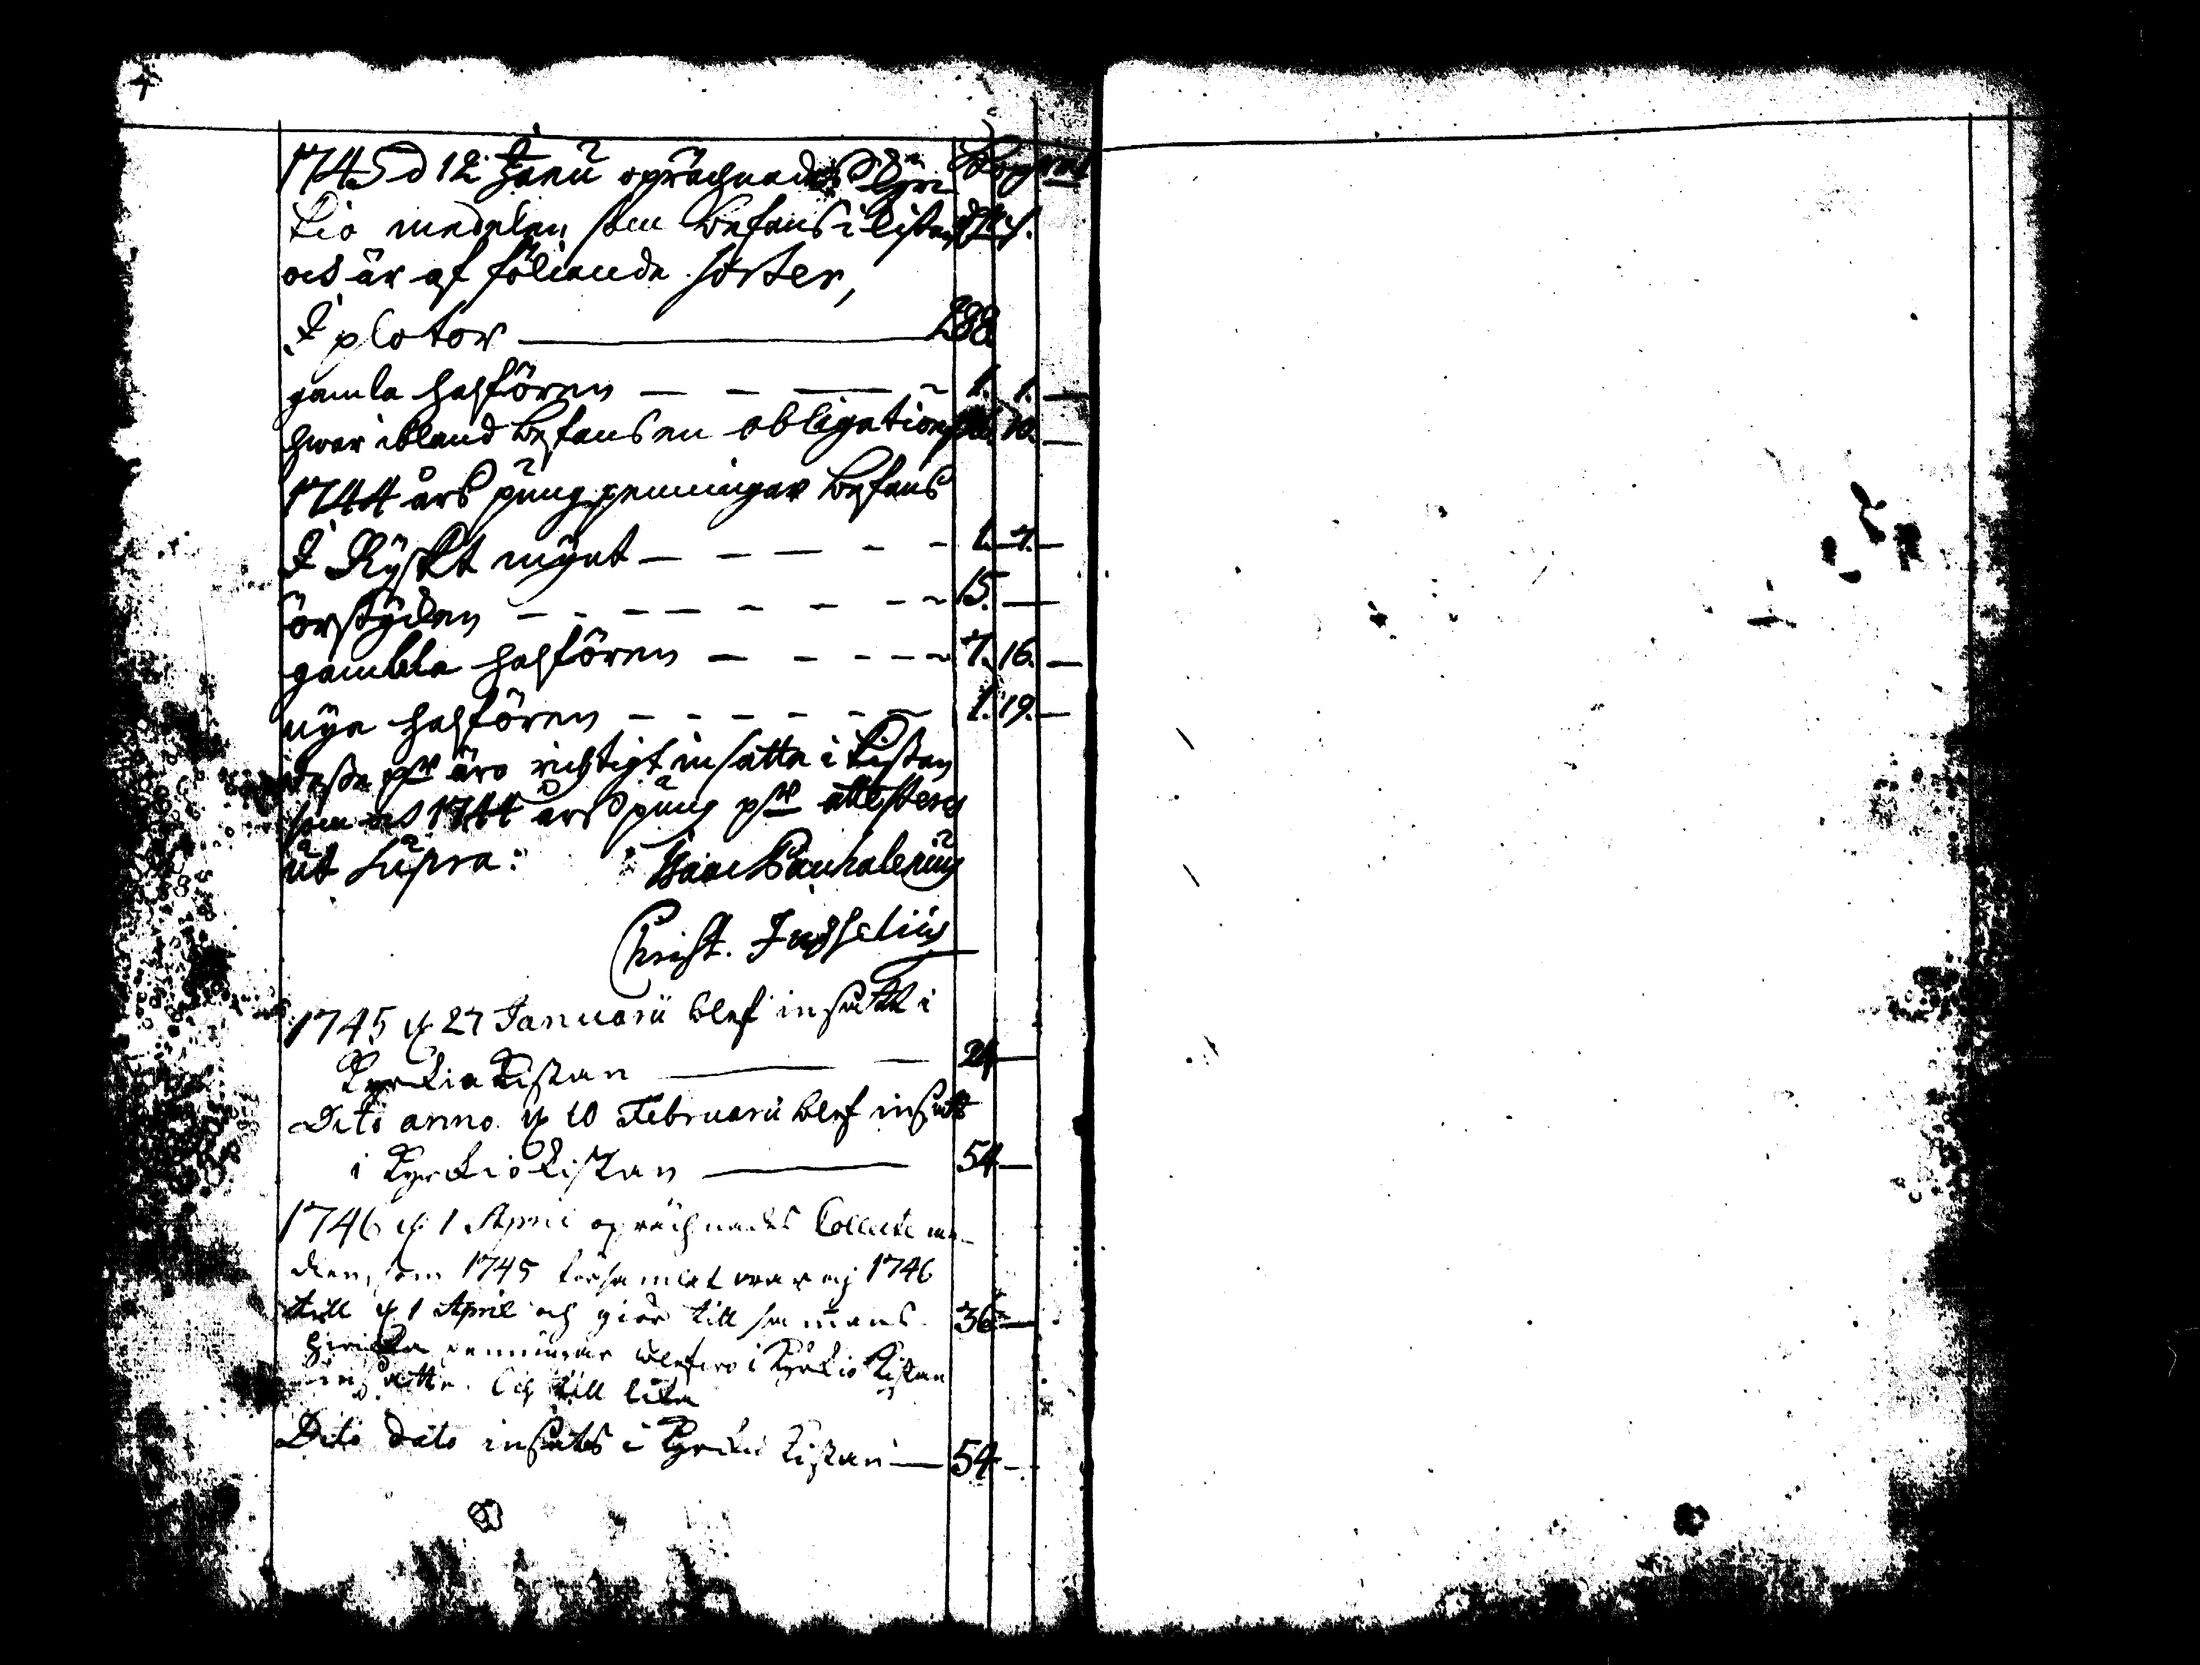 1745 d 12 Janu opräcknades Kyr
kio medelen som befans i kistan
och är af följande sorter,
I plotor 288.
gamla halfören 1. 1.
hwar ibland befans en obligation 10.
1744 års pung penningar befans
I Ryskt mynt 1. 7.
örstycken 15.
gambla halfören 7. 16.
nya halfören 1. 19.
desse pgr äro richtigt insatta i Kistan
som är 1744 års pung pgr attesteras
ut supra: Isaac Pauralenius
Christ.
1745 d 27 Januarii blef insatt i
Kyrkiakistan 24
Dito anno d 10 Februarii blef insatt
i Kyrkiokistan 54
1746 d 1 April opräcknades Collecte me-
dlen, som 1745 församlat war och 1746
till d 1 April och giör till samans 36
hwilka penningar blefwo i Kyrkio Kistan
insatte. Och till lika
Dito dato insattes i Kyrkio Kistan 54